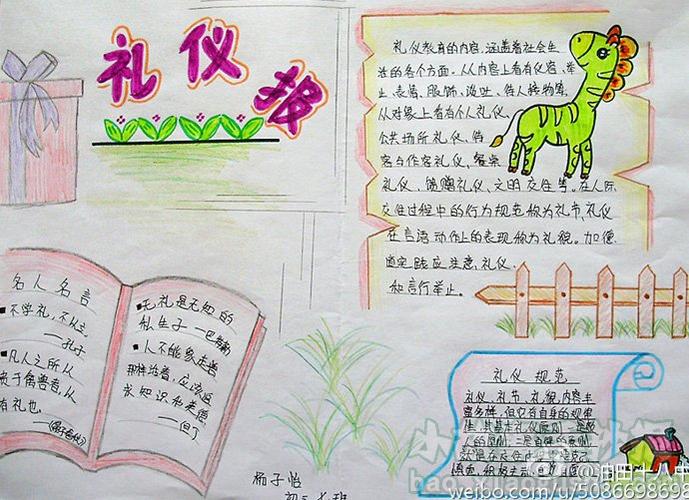 礼仪报
礼仪教育的内容,涵盖着社会生
活的各个方面。从内容上看有仪容、举
止、表情、服饰、谈吐、待人接物等,
从对象上看有个人礼仪、
公共场所礼仪、待
客与作客礼仪、餐桌
礼仪、馈赠礼仪、文明交往等。在人际
交往过程中的行为规范称为礼节,礼仪
在言语动作上的表现称为礼貌。加德
道实践应注意,礼仪、
和言行举止。
名人名言
不学礼,不以立。
——孔子
凡人之所以
贵于禽兽者,以
有礼也。
——《晏子春秋》
无礼是无知的
私生子
人不能象走兽
那样活着,应该追
求知识和美德
——但丁
礼仪规范
礼仪、礼节、礼貌内容丰
富多样,但它有自身的规律
性,其基本礼仪原则:一是敬
人的原则;二是自律的原则,
就是在交往中
初
班
@油田十八中
weibo.com/u/5086698698